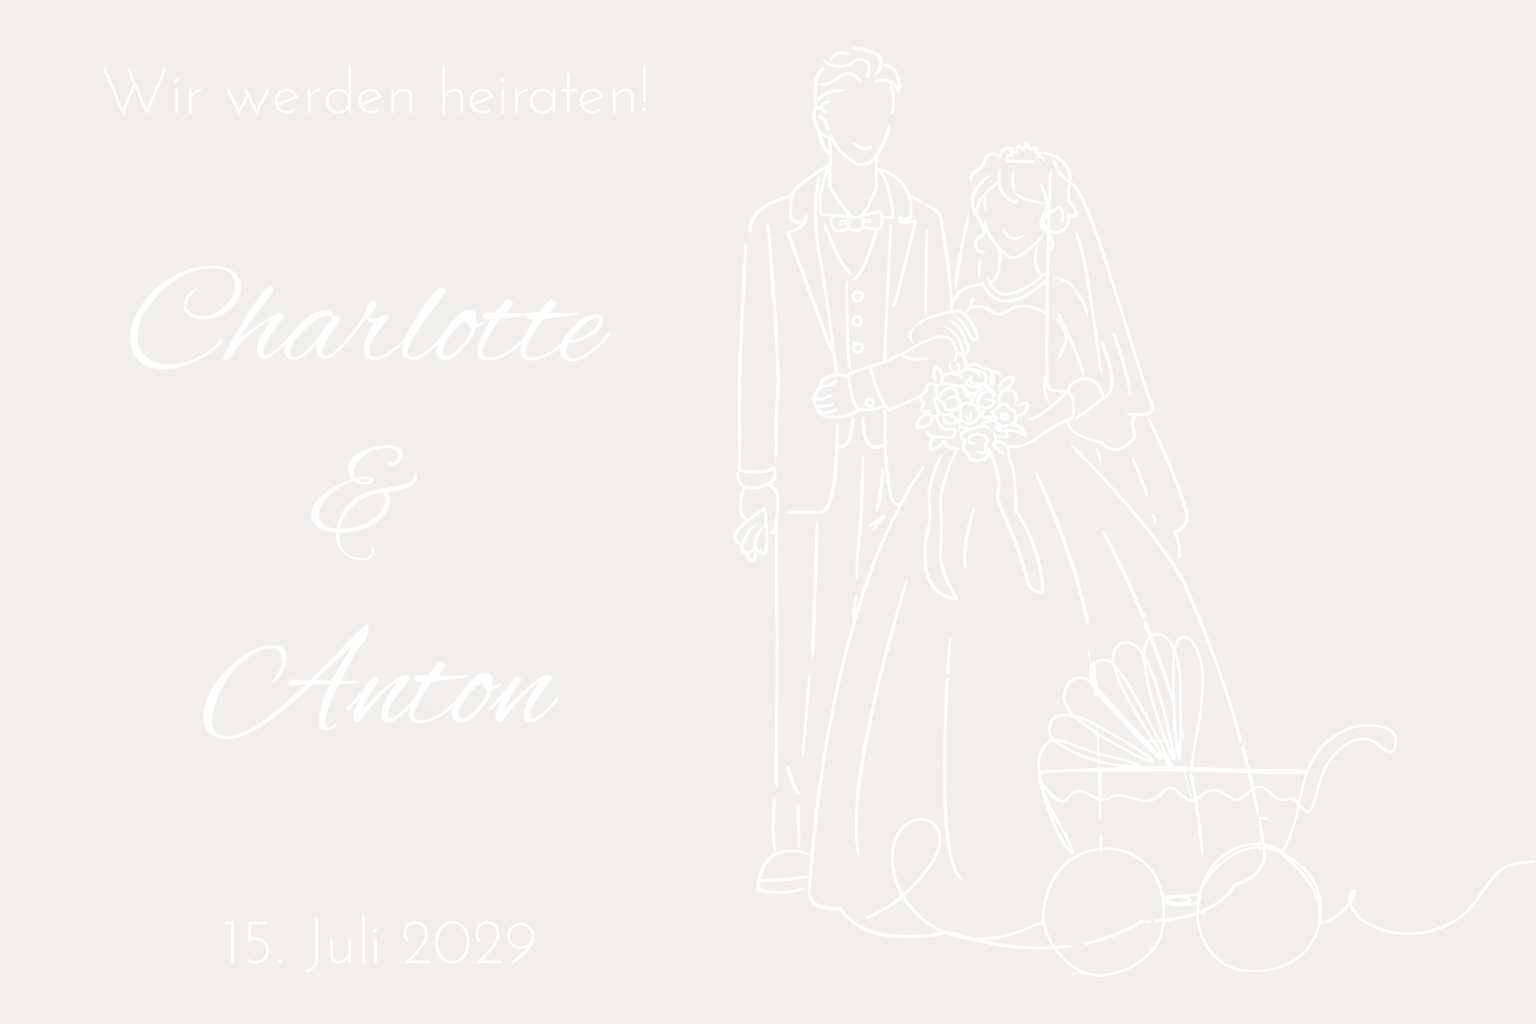 Wir werden heiraten!
Charlotte
&
Anton
15. Juli 2029